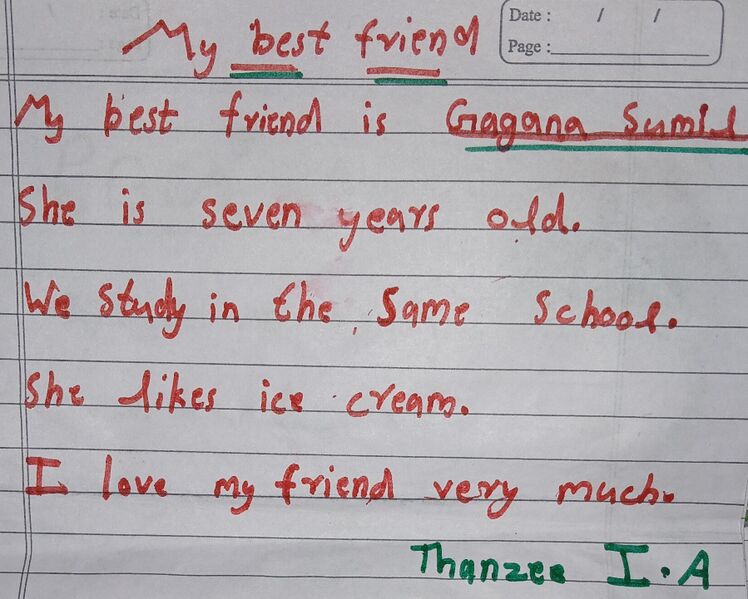 Date : / /
Page :
My best friend
My best friend is Gagana
She is seven years old.
We study in the same school.
She likes ice cream.
I love my friend very much.
Thanzee I.A